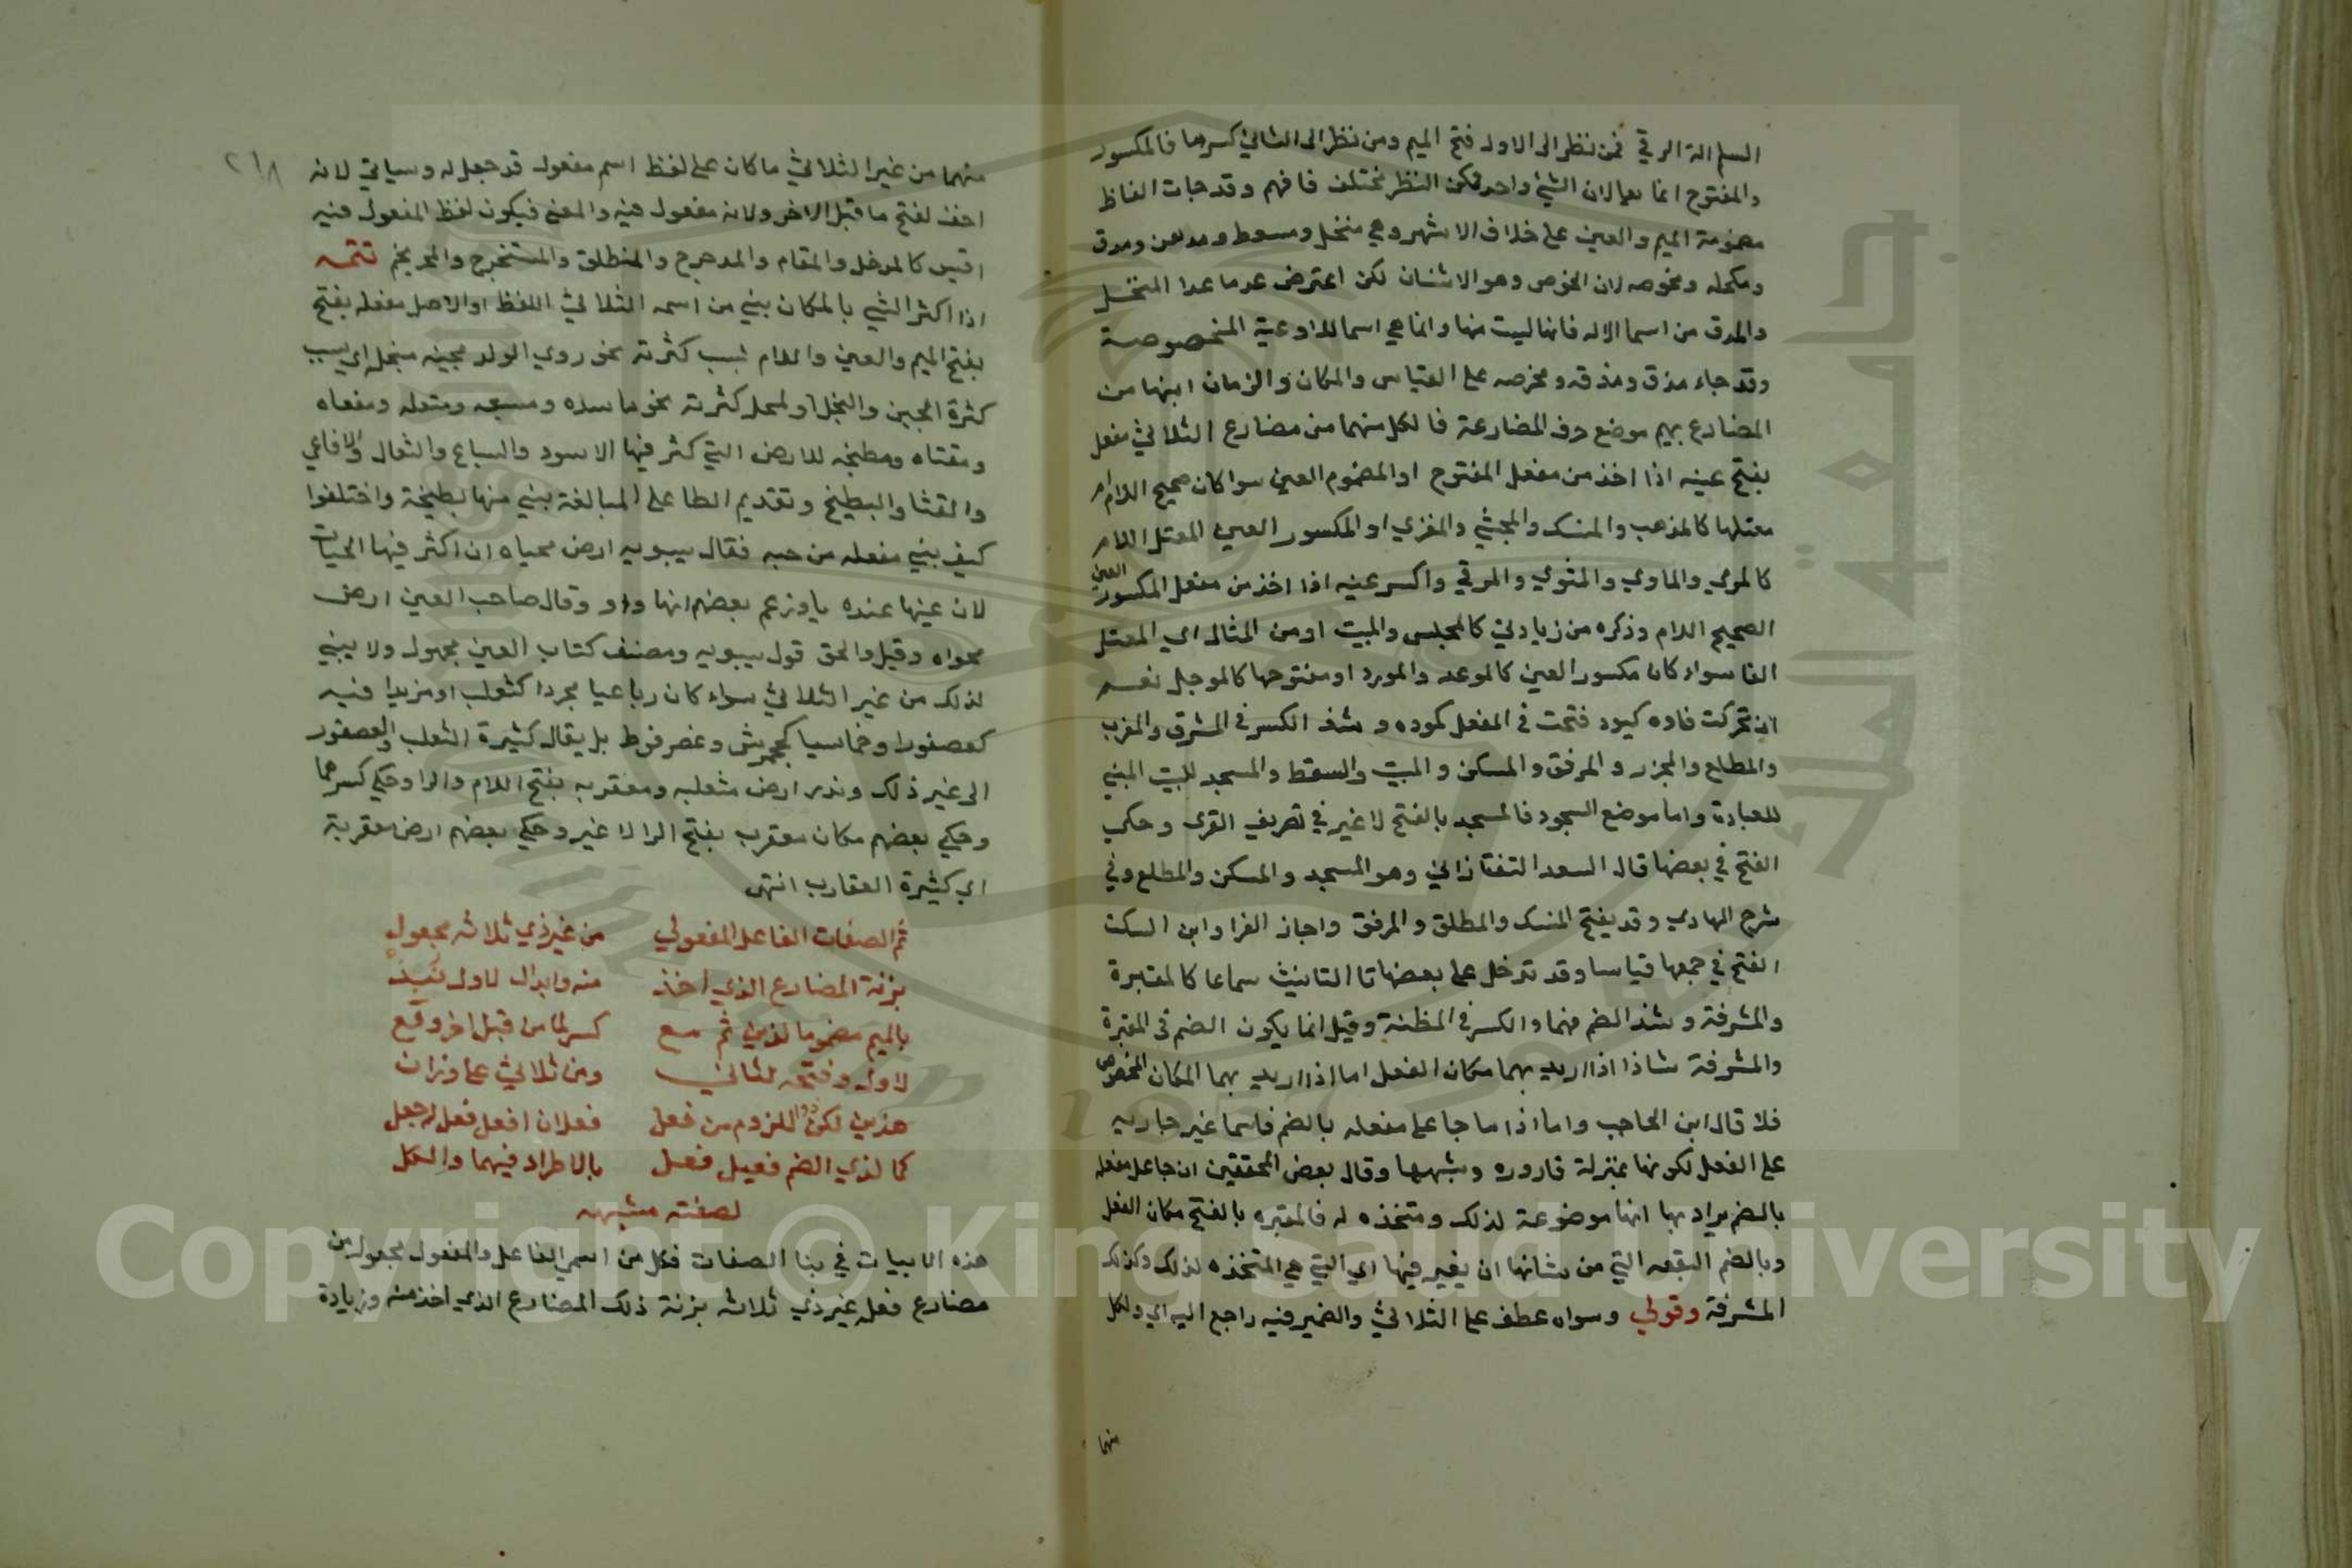 السلم الة الرقي فمن نظر الى الاول فتح الميم ومن نظر الى الثاني كسرها فالمكسور
والمفتوح انما يقالان الشي واحد لكن النظر مختلف فافهم وقد جات الفاظ
مضمومة الميم والعين على خلاف الاشهر وهي منخل ومسعط ومدهن ومدق
ومكحله ومحرضه لان الحرض وهو الاشنان لكن اعترض عد ما عدا المنخل
والمدق من اسما الاله فانها ليست منها وانما هي اسما للاوعية المخصوصة
وقد جاء مدق ومدقه ومحرضه على القياس والمكان والزمان ابنها من
المضارع بميم موضع حرف المضارعة فالكل منهما من مضارع الثلاثي مفعل
بفتح عينه اذا اخذ من مفعل المفتوح او المضموم العين سوا كان صحيح اللام ام
معتلها كالمذهب والمنسك والمجثي والمغزي او المكسور العين المعتل اللام
كالمرمي والماوي والمثوي والمرقي واكسر عينه اذا اخذ من مفعل المكسور العين
الصحيح اللام وذكره من زيادتي كالمجلس والمبيت او من المثال اي المعتل
الفا سواء كان مكسور العين كالموعد والمورد او مفتوحها كالموجل نعم
ان تحركت فاوه كيود فتحت في المفعل كموده وشذ الكسر في المشرق والمغرب
والمطلع والمجزر والمرفق والمسكن والمبيت والسقط والمسجد للبيت المبني
للعبادة واما موضع السجود فالمسجد بالفتح لا غير في تصريف القرى وحكي
الفتح في بعضها قال السعد التفتازاني وهو المسجد والمسكن والمطلع وفي
شرح الهادي وقد يفتح المنسك والمطلق والمرفق واجاز الفرا وابن السكت
الفتح في جمعها قياسا وقد تدخل على بعضها تا التانيث سماعا كالمقبرة
والمشرفة وشذ الضم فيهما والكسر في المظنة وقيل انما يكون الضم في المقبرة
والمشرفة شاذا اذا اريد بهما مكان الفعل اما اذا اريد بهما المكان المخصوص
فلا قال ابن الحاجب واما اذا ما جا على مفعله بالضم فاسما غير جاريه
على الفعل لكونها بمنزلة قاروره وشبهها وقال بعض المحققين ان جا على مفعله
بالضم يراد بها انها موضوعة لذلك ومتخذه له فالمقبره بالفتح مكان الفعل
وبالضم البقعه التي من شانها ان يقبر فيها اي التي هي المتخذه لذلك وكذلك
المشرفة وقولي وسواه عطف على الثلاثي والضمير فيه راجع اليه اي ولكل
منهما
٢١٨
منهما من غير الثلاثي ما كان على لفظ اسم مفعول قد جعل له وسياتي لانه
اخف لفتح ما قبل الاخر ولانه مفعول فيه والمعنى فيكون لفظ المفعول فيه
اقيس كالمدخل والمقام والمدحرج والمنطلق والمستخرج والمحرنجم تتمه
اذا اكثر الشي بالمكان بني من اسمه الثلاثي اللفظ او الاصل مفعله بفتح
بفتح الميم والعين واللام لسبب كثرته نحو روي الولد مجبنه مبخله اي سبب
كثرة الجبن والبخل او لمحل كثرته نحو ماسده ومسبعه ومثعله ومفعاه
ومقثاه ومطبخه للارض التي كثر فيها الاسود والسباع والثعال والافاعي
والقثا والبطيخ وتقديم الطا على المبالغة بني منها لطبيخة واختلفوا
كيف بني مفعله من حيه فقال سيبويه ارض محياه ان اكثر فيها الحيات
لان عينها عنده يا وزعم بعضهم انها واو وقال صاحب العين ارض
محواه وقيل والحق قول سيبويه ومصنف كتاب العين مجهول ولا يبني
لذلك من غير الثلاثي سواء كان رباعيا مجردا كثعلب او مزيدا فيه
كعصفور او خماسيا كجحمرش وعضرفوط بل يقال كثيرة الثعلب والعصفور
الى غير ذلك وندر ارض مثعلبه ومعقربه بفتح اللام والرا وحكي كسرهما
وحكي بعضهم مكان معقرب بفتح الرا لا غير وحكي بعضهم ارض معقربة
اي كثيرة العقارب انتهى
ثم الصفات الفاعل المفعولي من غير ذي ثلاثه مجعول
بزنة المضارع الذي اخذ منه وابدال لاول نبذ
بالميم مضموما لذين ثم مع كسر لما من قبل اخر وقع
لاول وفتحه لثاني ومن ثلاثي على وزان
هذين لكن ذو اللزوم من فعل فعلان افعل فعل لرجل
كما لذي الضم فعيل فعل بالاطراد فيهما والكل
لصفته مشبهه
هذه الابيات في بنا الصفات فكل من اسمي الفاعل والمفعول مجعول من
مضارع فعل غير ذي ثلاثه بزنة ذلك المضارع الذي اخذ منه وزيادة
Copyright © King Saud University